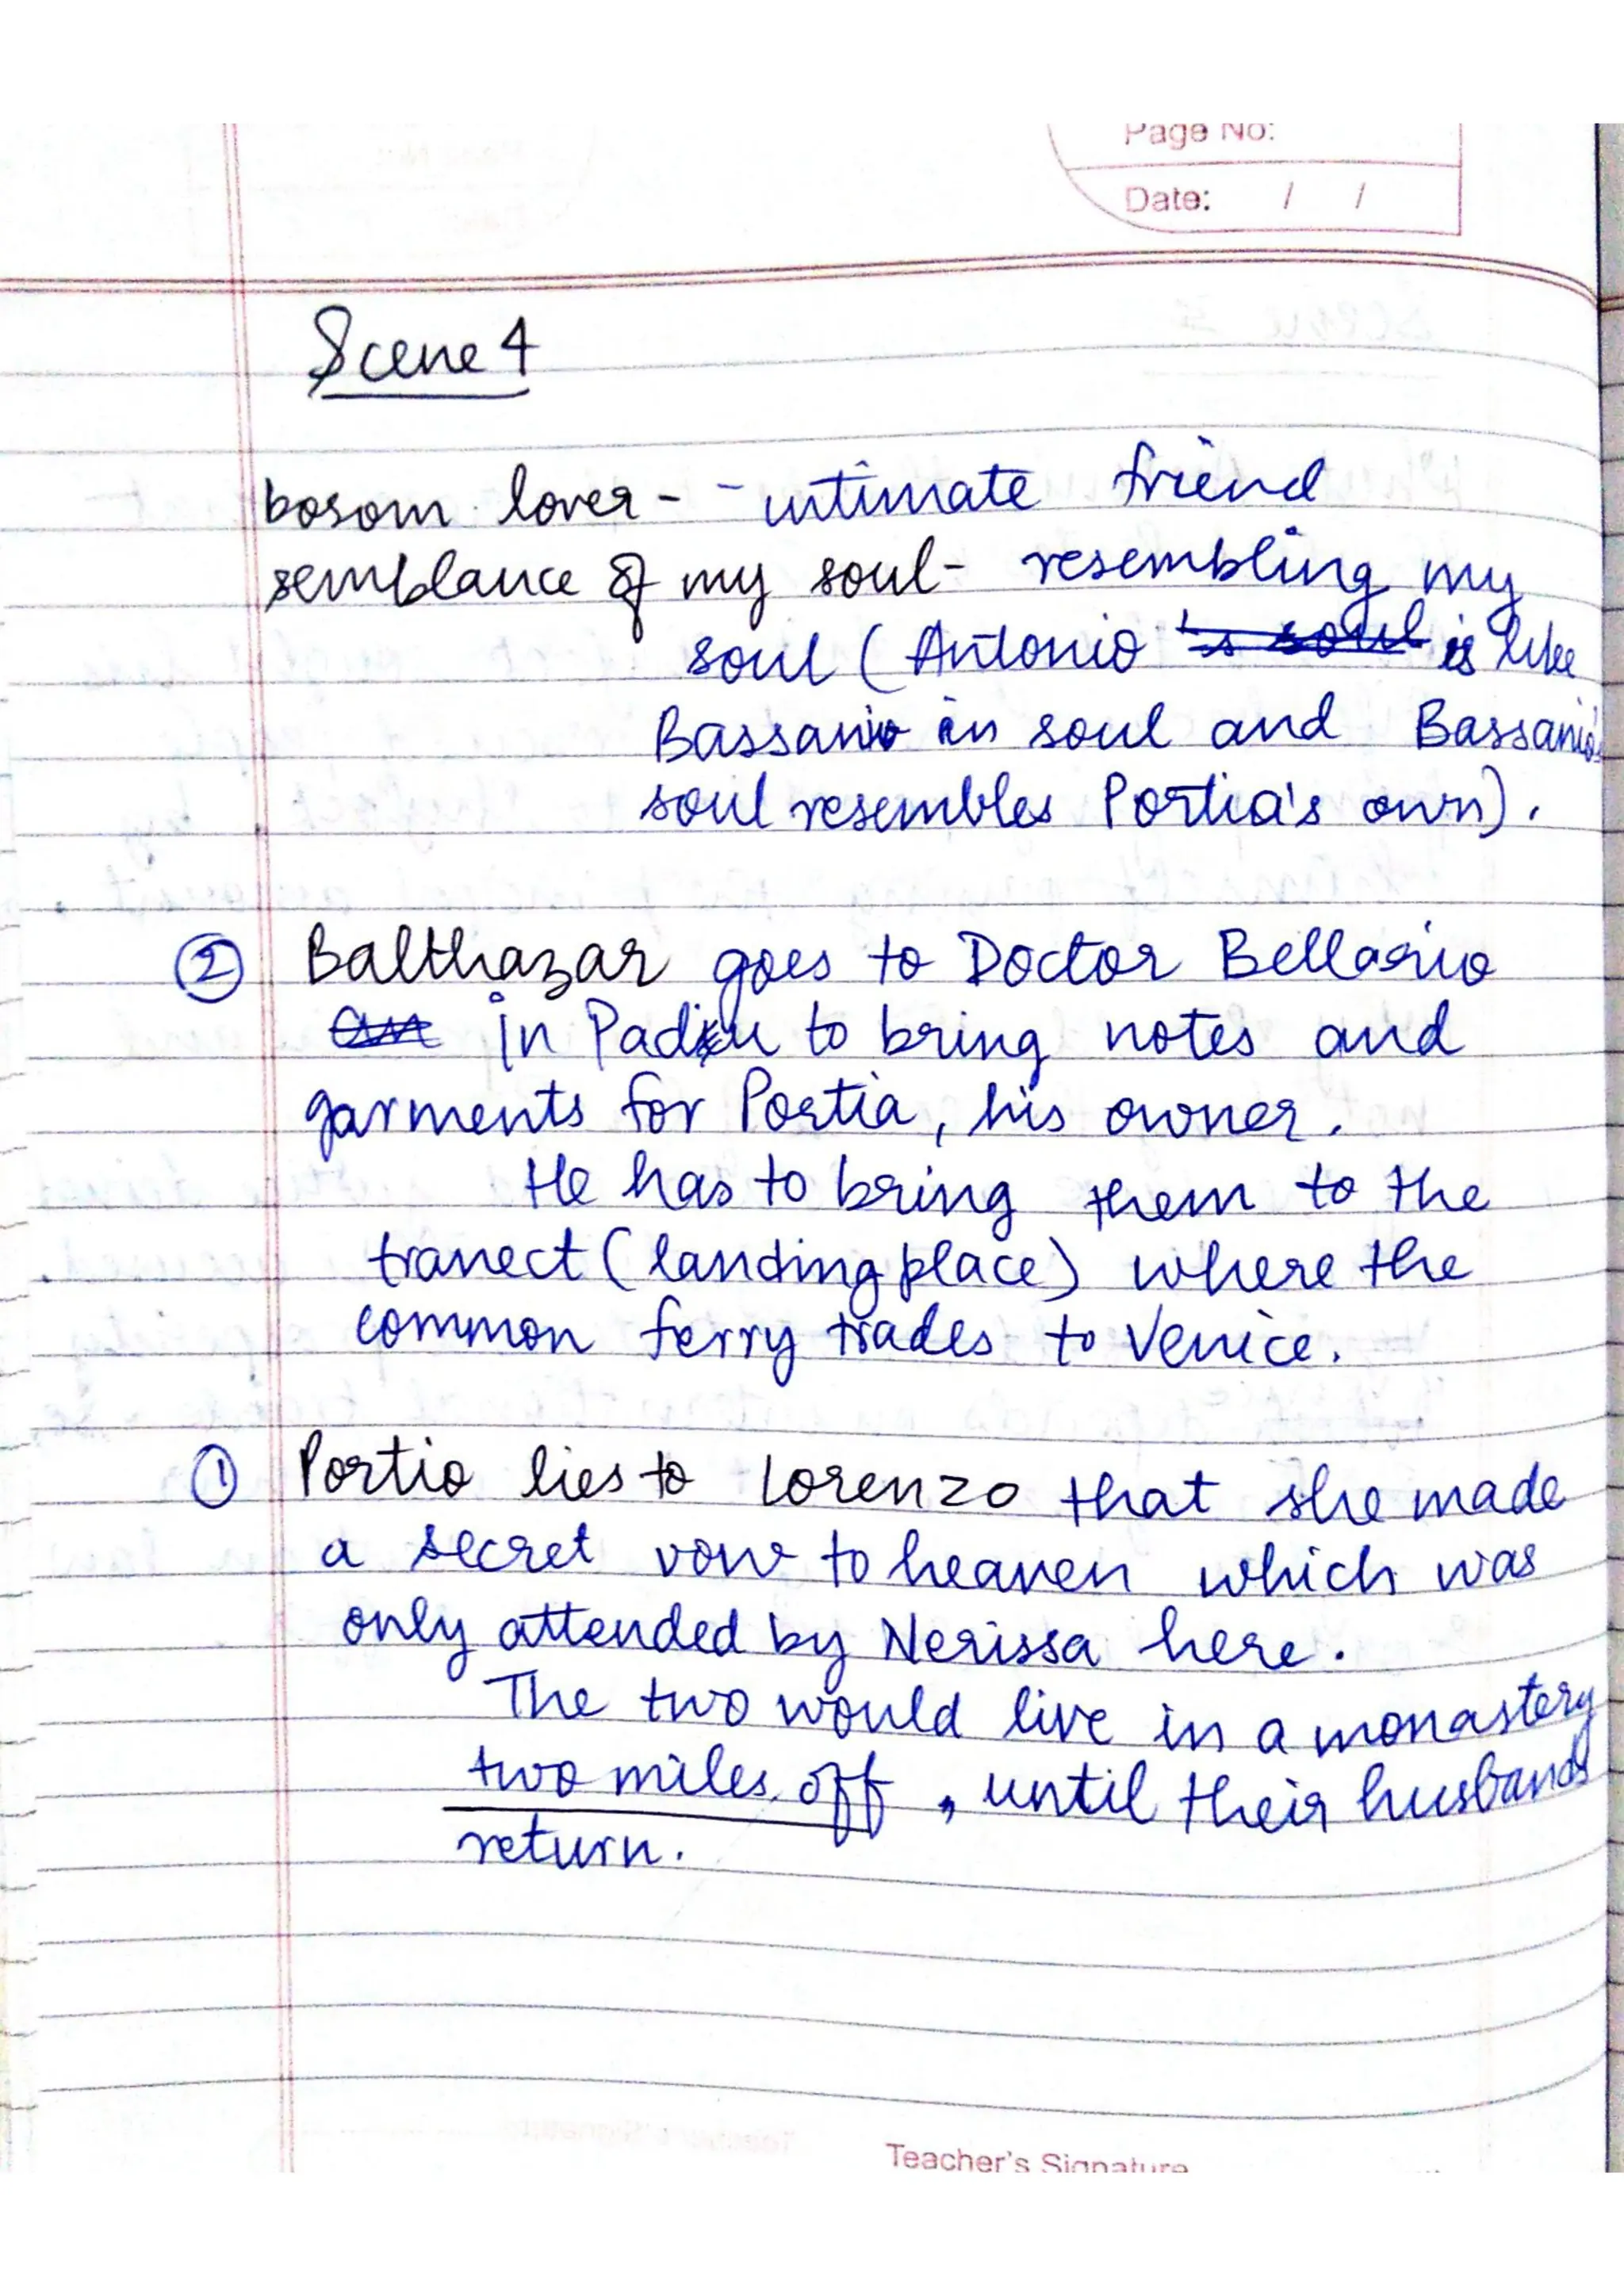 Page No:
Date: / /
Scene 4
bosom lover - - intimate friend
semblance of my soul - resembling my
soul (Antonio 's soul is like
Bassanio in soul and Bassanio's
soul resembles Portia's own).
② Balthazar goes to Doctor Bellario
in Padu to bring notes and
garments for Portia, his owner.
He has to bring them to the
tranect (landing place) where the
common ferry trades to Venice.
① Portia lies to Lorenzo that she made
a secret vow to heaven which was
only attended by Nerissa here.
The two would live in a monastery
two miles off, until their husbands
return.
Teacher's Signature